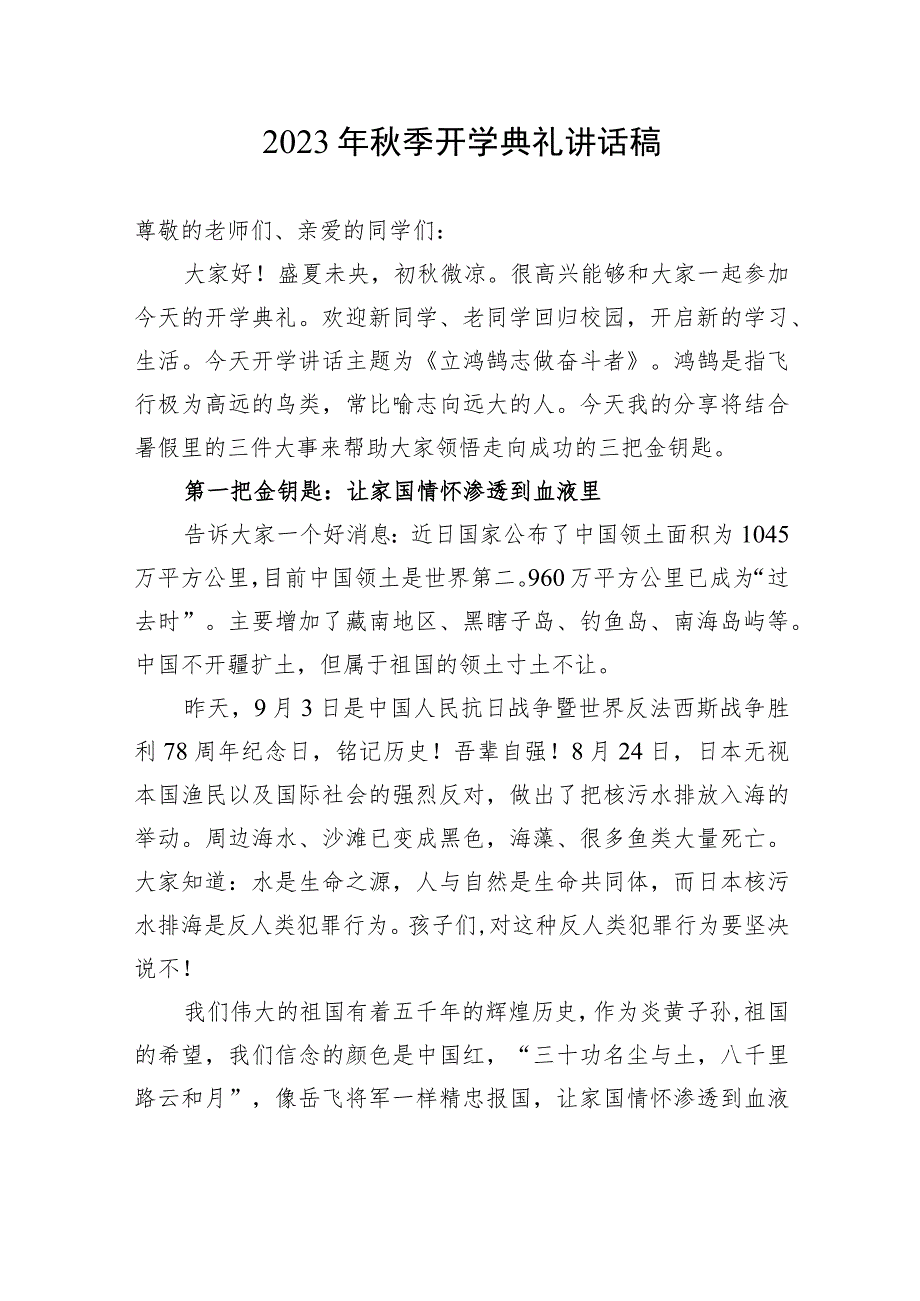 2023年秋季开学典礼讲话稿
尊敬的老师们、亲爱的同学们：
大家好！盛夏未央，初秋微凉。很高兴能够和大家一起参加
今天的开学典礼。欢迎新同学、老同学回归校园，开启新的学习、
生活。今天开学讲话主题为《立鸿鹄志做奋斗者》。鸿鹄是指飞
行极为高远的鸟类，常比喻志向远大的人。今天我的分享将结合
暑假里的三件大事来帮助大家领悟走向成功的三把金钥匙。
第一把金钥匙：让家国情怀渗透到血液里
告诉大家一个好消息：近日国家公布了中国领土面积为1045
万平方公里，目前中国领土是世界第二。960万平方公里已成为“过
去时”。主要增加了藏南地区、黑瞎子岛、钓鱼岛、南海岛屿等。
中国不开疆扩土，但属于祖国的领土寸土不让。
昨天，9月3日是中国人民抗日战争暨世界反法西斯战争胜
利78周年纪念日，铭记历史！吾辈自强！8月24日，日本无视
本国渔民以及国际社会的强烈反对，做出了把核污水排放入海的
举动。周边海水、沙滩已变成黑色，海藻、很多鱼类大量死亡。
大家知道：水是生命之源，人与自然是生命共同体，而日本核污
水排海是反人类犯罪行为。孩子们,对这种反人类犯罪行为要坚决
说不！
我们伟大的祖国有着五千年的辉煌历史，作为炎黄子孙,祖国
的希望，我们信念的颜色是中国红，“三十功名尘与土，八千里
路云和月”，像岳飞将军一样精忠报国，让家国情怀渗透到血液